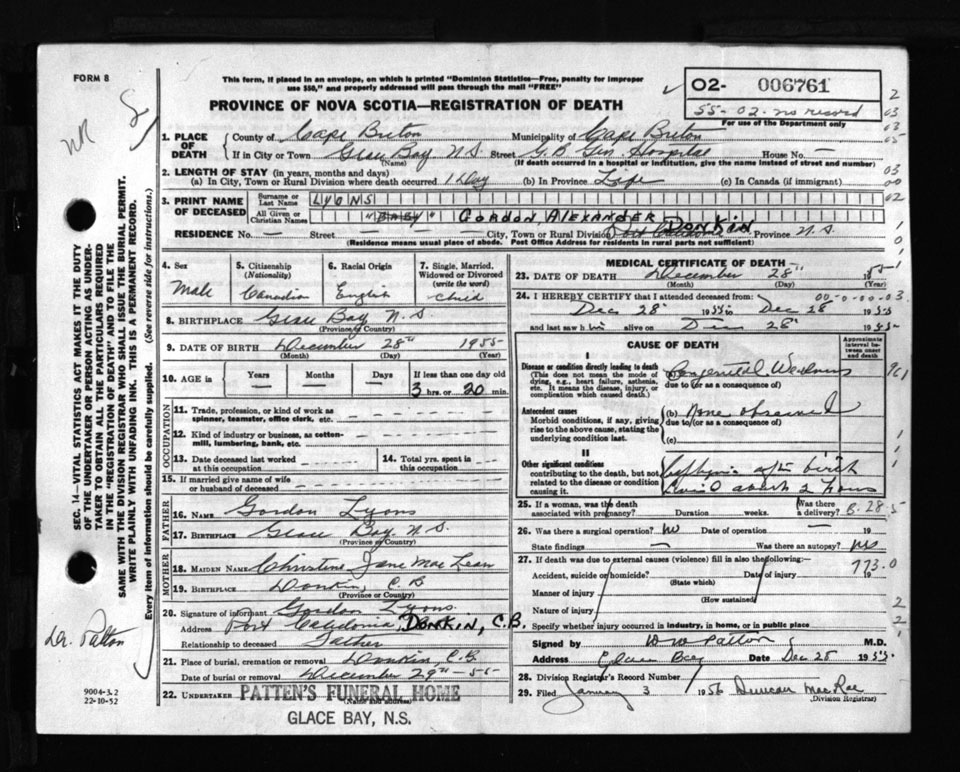 FORM 8
This form, if placed in an envelope, on which is printed "Dominion Statistics—Free, penalty for improper
use $50," and properly addressed will pass through the mail "FREE"
PROVINCE OF NOVA SCOTIA—REGISTRATION OF DEATH
02- 006761
55-02-no record
For use of the Department only
1. PLACE OF DEATH
County of Cape Breton Municipality of Cape Breton
If in City or Town Glace Bay N.S Street G.B Gen. Hospital House No. —
(Name) (If death occurred in a hospital or institution, give the name instead of street and number)
2. LENGTH OF STAY (in years, months and days)
(a) In City, Town or Rural Division where death occurred 1 Day (b) In Province Life (c) In Canada (if immigrant)
3. PRINT NAME OF DECEASED
Surname or Last Name LYONS
All Given or Christian Names "BABY" GORDON ALEXANDER
RESIDENCE No. — Street — City, Town or Rural Division Port Caledonia DONKIN Province N.S
(Residence means usual place of abode. Post Office Address for residents in rural parts not sufficient)
4. Sex
Male
5. Citizenship (Nationality)
Canadian
6. Racial Origin
English
7. Single, Married, Widowed or Divorced (write the word)
child
8. BIRTHPLACE Glace Bay N.S
(Province or Country)
9. DATE OF BIRTH December 28th 1955
(Month) (Day) (Year)
10. AGE in Years Months Days If less than one day old
3 hrs. or 20 min.
OCCUPATION
11. Trade, profession, or kind of work as spinner, teamster, office clerk, etc.
12. Kind of industry or business, as cotton-mill, lumbering, bank, etc.
13. Date deceased last worked at this occupation
14. Total yrs. spent in this occupation
15. If married give name of wife or husband of deceased
FATHER
16. NAME Gordon Lyons
17. BIRTHPLACE Glace Bay N.S
(Province or Country)
MOTHER
18. MAIDEN NAME Christine Jane Mac Lean
19. BIRTHPLACE Donkin C.B
(Province or Country)
20. Signature of informant Gordon Lyons
Address Port Caledonia, DONKIN, C.B.
Relationship to deceased Father
21. Place of burial, cremation or removal Donkin, C.B.
Date of burial or removal December 29th-55
22. UNDERTAKER PATTEN'S FUNERAL HOME
(Name and address)
GLACE BAY, N.S.
MEDICAL CERTIFICATE OF DEATH
23. DATE OF DEATH December 28th 1955
(Month) (Day) (Year)
00-0-00-03
24. I HEREBY CERTIFY that I attended deceased from:
Dec 28 1955 to Dec 28 1955
and last saw him alive on Dec 28 1955
CAUSE OF DEATH
Approximate interval between onset and death
I
Disease or condition directly leading to death
(This does not mean the mode of dying, e.g., heart failure, asthenia, etc. It means the disease, injury, or complication which caused death.
Congenital Weakness
due to (or as a consequence of)
Antecedent causes
Morbid conditions, if any, giving rise to the above cause, stating the underlying condition last.
(b) None observed
due to (or as a consequence of)
(c)
II
Other significant conditions
contributing to the death, but not related to the disease or condition causing it.
after birth
about 2 hours
25. If a woman, was the death associated with pregnancy? Duration weeks. Was there a delivery?
8.28.5
26. Was there a surgical operation? no Date of operation — 19
State findings — Was there an autopsy?
27. If death was due to external causes (violence) fill in also the following:—
773.0
Accident, suicide or homicide? Date of injury 19
(State which)
Manner of injury
(How sustained)
Nature of injury
Specify whether injury occurred in industry, in home, or in public place
Signed by W W Patton M.D.
Address Glace Bay Date Dec 28 1955
28. Division Registrar's Record Number
29. Filed January 3 1956 Duncan MacRae
(Division Registrar)
SEC. 14—VITAL STATISTICS ACT MAKES IT THE DUTY
OF THE UNDERTAKER OR PERSON ACTING AS UNDER-
TAKER TO OBTAIN ALL THE PARTICULARS REQUIRED
IN THE "REGISTRATION OF DEATH" AND TO FILE THE
SAME WITH THE DIVISION REGISTRAR WHO SHALL ISSUE THE BURIAL PERMIT.
WRITE PLAINLY WITH UNFADING INK. THIS IS A PERMANENT RECORD.
Every item of information should be carefully supplied. (See reverse side for instructions.)
NR
Dr. Patton
9004-3.2
22-10-52